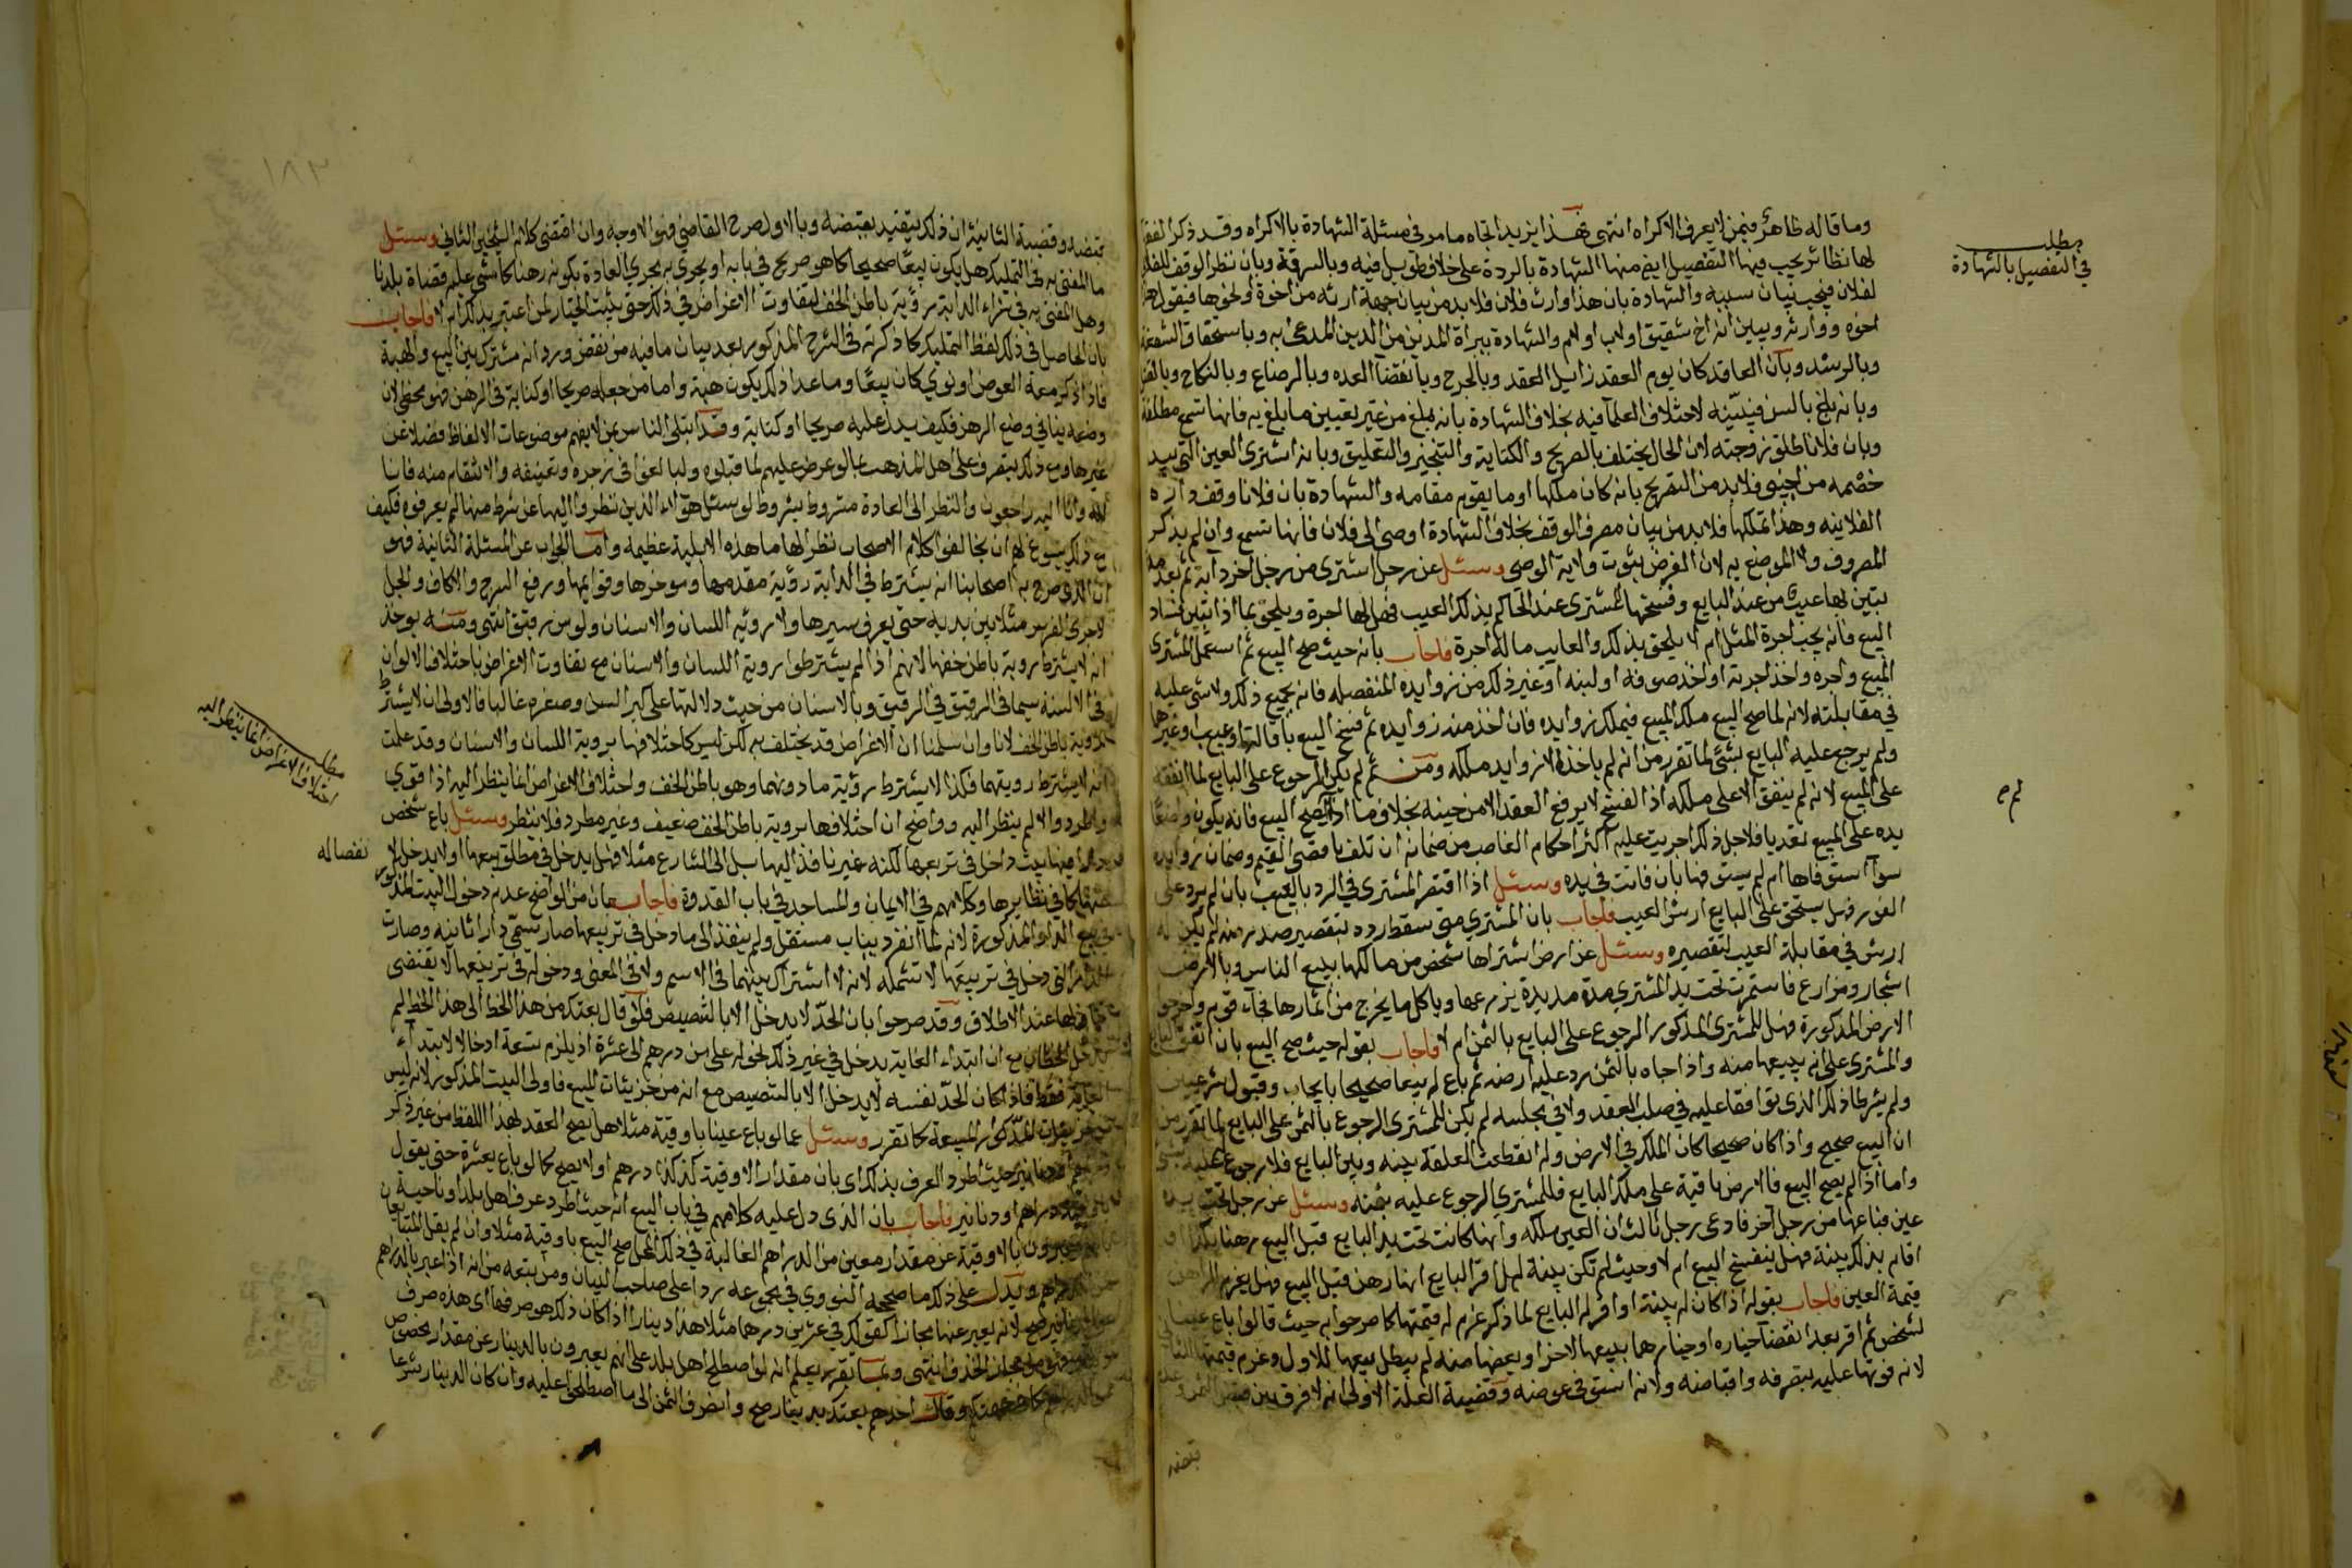 وما قاله ظاهر فيمن لا يعرف الاكراه انتهى فهذا يزيد اتجاه ما مر في مسئلة الشهادة بالاكراه وقد ذكر الفقها
لها نظائر يجب فيها التفصيل ايض منها الشهادة بالردة على خلاف طويل فيه وبالسرقة وبان نظر الوقف الفلاني
لفلان فيجب بيان سببه والشهادة بان هذا وارث فلان فلا بد من بيان جهة ارثه من اخوة او نحوها فيقول هذا
اخوه ووارثه ويبين انه اخ شقيق او لاب او لام والشهادة ببراة المدين من الدين المدعى به وباستحقاق الشفعة
وبالرشد وبان العاقد كان يوم العقد زايل العقد وبالجرح وبانقضآ العده وبالرضاع وبالنكاح وبالقتل
وبانه بلغ بالسن فيبينه لاختلاف العلمآ فيه بخلاف الشهادة بانه بلغ من غير تعيين ما بلغ به فانها تسمع مطلقة
وبان فلانا طلق زوجته لان الحال يختلف بالصريح والكناية والتنجيز والتعليق وبانه اشترى العين التي بيد
خصمه من اجنبي فلا بد من التصريح بانه كان ملكها او ما يقوم مقامه والشهادة بان فلانا وقف داره
الفلانيه وهذا يملكها فلا بد من بيان مصرف الوقف بخلاف الشهادة اوصى الى فلان فانها تسمع وان لم يذكر
المصروف ولا الموضع به لان الغرض ثبوت ولاية الوصى وسئل عن رجل اشترى من رجل اخر دابة ثم بعد مدة
تبين لها عيب من عند البايع وفسخها المشترى عند الحاكم بذلك العيب فهل لها اجرة ويلحق بما اذا تبين فساد
البيع فانه يجب اجرة المثل ام لا يلحق بذلك والعايب ماله اجرة فاجاب بانه حيث صح البيع ثم استعمل المشترى
المبيع واجره واخذ اجرته او اخذ صوفه او لبنه او غير ذلك من زوايده المنفصله فانه بجميع ذلك ولا شى عليه
في مقابلته لانه لما صح البيع ملك المبيع فيملك زوايده فان اخذ منه زوايده ثم فسخ البيع باقالة او عيب او غيرها
ولم يرجع عليه البايع بشئ لما تقرر من انه لم ياخذ الا زوايد ملكه ومن ثم لم يكن الرجوع على البايع لما انفقه
على المبيع لانه لم ينفق الا على ملكه اذ الفسخ لا يرفع العقد الا من حينه بخلاف ما اذا لم يصح البيع فانه يكون واضعا
يده على المبيع تعديا فلاجل ذلك اجريت عليه اكثر احكام الغاصب من ضمانه ان تلف باقصى القيم وضمان زوايده
سوآ استوفاها ام لم يستوفها بان فاتت في يده وسئل اذا اقتصر المشترى في الرد بالعيب بان لم يرد على
الفور فهل يستحق على البايع ارش العيب فاجاب بان المشتري متى سقط رده بتقصير صدر منه لم يكن له
ارش في مقابلة العيب لتقصيره وسئل عن ارض اشتراها شخص من مالكها ببيع الناس وبالارض
اشجار ومزارع فاستمرت تحت يد المشتري مدة مديدة يزرعها وياكل ما يخرج من اثمارها فجآء قوم واخرجوا
الارض المذكورة فهل للمشترى المذكور الرجوع على البايع بالثمن ام لا فاجاب بقوله حيث صح البيع بان اتفق البايع
والمشترى على انه يبيعها منه واذا جاه بالثمن رد عليه ارضه ثم باع له بيعا صحيحا بايجاب وقبول شرعيين
ولم يشرطا ذلك الذى توافقا عليه في صلب العقد ولا في مجلسه لم يكن للمشترى الرجوع بالثمن على البايع لما تقرر من
ان البيع صحيح واذا كان صحيحا كان الملك في الارض وله انقطعت العلقة بينه وبين البايع فلا رجوع عليه بشى
واما اذا لم يصح البيع فالارض باقية على ملك البايع فللمشتري الرجوع عليه بثمنه وسئل عن رجل تحت يده
عين فباعها من رجل آخر فادعى رجل ثالث ان العين ملكه وانها كانت تحت يد البايع قبل البيع رهنا بكذا و
اقام بذلك بينة فهل ينفسخ البيع ام لا وحيث لم تكن بينة فهل اقر البايع انها رهن قبل البيع فهل يغرم للراهن
قيمة العين فاجاب بقوله اذا كان له بينة او اقر له البايع لما ذكر غرم له قيمتها كما صرحوا به حيث قالوا باع عينا
لشخص ثم اقر بعد انقضآ خياره او خيارهما ببيعها لاخر او بعضها منه لم يبطل بيعها للاول وغرم قيمتها للثاني
لانه فوتها عليه بتصرفه واقباضه ولانه استوفى عوضه وقضية العلة الاولى انه لا فرق بين قبض الثمن وعدم
قبضه
مطلب
في التفصيل بالشهادة
لم ص
١٨٣
قبضه وقضية الثانية ان ذلك يتقيد بقبضه وبالاول صرح القاضي فهو الاوجه وان اقتضى كلام الشيخين الثاني وسئل
ما المفتى به في التمليك هل يكون بيعا صحيحا كما هو صريح في بابه او يجرى به مجرى العادة بكونه رهنا كما مشى عليه قضاة بلدنا
وهل المفتى به في شراء الدابة رؤية باطن الخف لتفاوت الاغراض في ذلك حتى يثبت الخيار لمن اعتبر بذلك ام لا فاجاب
بان الحاصل في ذلك لفظ التمليك كما ذكرته في الشرح المذكور بعد بيان ما فيه من نقض ورد انه مشترك بين البيع والهبة
فاذا ذكر معه العوض او نوي كان بيعا وما عدا ذلك يكون هبة واما من جعله صريحا او كناية في الرهن فهو مخطئ لان
وضعه ينافي وضع الرهن فكيف يدل عليه صريحا او كناية وقد ابتلى الناس بمن لا يفهم موضوعات الالفاظ فضلا عن
غيرها ومع ذلك يتصرف على اهل المذهب بما لو عرض عليهم لما قبلوه ولبالغوا في زجره وتعنيفه والانتقام منه فانا
لله وانا اليه راجعون والنظر الى العادة مشروط بشروط لو سئل هؤلاء الذين نظروا اليها عن شرط منها لم يعرفوه فكيف
مع ذلك يسوغ لهم ان يخالفوا كلام الاصحاب نظرا لها ما هذه الا بلية عظيمه واما الجواب عن المسئلة الثانية فهو
ان الذى صرح به اصحابنا انه يشترط في الدابة رؤية مقدمها وموخرها وقوايمها ورفع السرج والاكاف والجل
لاجرى الفرس مثلا بين يديه حتى يعرف سيرها ولا رؤية اللسان والاسنان ولو من رقيق انتهى ومنه يوخذ
انه لا يشترط روية باطن خفها لانهم اذا لم يشترطوا روية اللسان والاسنان مع تفاوت الاغراض باختلاف الالوان
في الالسنة سيما في الرقيق وبالاسنان من حيث دلالتها على كبر السن وصغره غالبا فالاولى ان لا يشترط
روية باطن الخف لانا وان سلمنا ان الاغراض قد يختلف به لكن ليس كاختلافها بروية اللسان والاسنان وقد علمت
انه لا يشترط رويتهما فكذا لا يشترط رؤية ما دونهما وهو باطن الخف واختلاف الاغراض انما ينظر اليه اذا قوي
واطرد والا لم ينظر اليه وواضح ان اختلافها بروية باطن الخف ضعيف وغير مطرد فلا ينظر وسئل باع شخص
دارا فيها بيت داخل في تربيعها لكنه غير نافذ اليها بل الى الشارع مثلا فهل يدخل في مطلق بيعها او لا يدخل لا
كما في نظايرها وكلامهم في الايمان والمساجد في باب القدوة فاجاب بان من الواضح عدم دخول البيت المذكور
في بيع الدار المذكورة لانه لما انفرد بباب مستقل ولم ينفذ الى ما دخل في تربيعها صار يسمى دارا ثانيه وصارت
الدار التي دخل في تربيعها لا تشمله لانه لا اشتراك بينهما في الاسم ولا في المعنى ودخوله في تربيعها لا يقتضى
عند الاطلاق وقد صرحوا بان الحد لا يدخل الا بالتنصيص فلو قال بعتك من هذا الخط الى هذا الخط لم
يدخل الخطان مع ان ابتداء الغاية يدخل في غير ذلك نحو له على من درهم الى عشرة اذ يلزم تسعة ادخالا لابتدآء
الغاية فقط فاذا كان الحد نفسه لا يدخل الا بالتنصيص مع انه من جزئيات المبيع فاولى البيت المذكور لانه ليس
من جزئيات الدار المبيعة كما تقرر وسئل عما لو باع عينا باوقية مثلا هل يصح العقد لهذا اللفظ من غير ذكر
حيث اطرد العرف بذلك اى بان مقدار الاوقية كذا كذا درهم او لا يصح كما لو باع بعشرة حتى يقول
دراهم او دنانير فاجاب بان الذى دل عليه كلامهم في باب البيع انه حيث اطرد عرف اهل بلد او ناحية
يعبرون بالاوقية عن مقدار معين من الدراهم الغالبة في ذلك المحل صح البيع باوقية مثلا وان لم يقل المتبايعان
ويدل على ذلك ما صححه النووي في مجموعه ردا على صاحب البيان ومن تبعه من انه اذا عبر بالدراهم
صح لانه يعبر عنها مجازا كقولك في عشرين درهما مثلا هذا دينار اذا كان ذلك هو صرفها اى هذه صرف
انتهى وبما تقرر يعلم انه لو اصطلح اهل بلد على انهم يعبرون بالدينار عن مقدار مخصوص
وقال احدهم بعتك بدينار صح وانصرف الثمن الى ما اصطلحوا عليه وان كان الدينار شرعا
مطلب
اختلاف الاغراض انما ينظر اليه